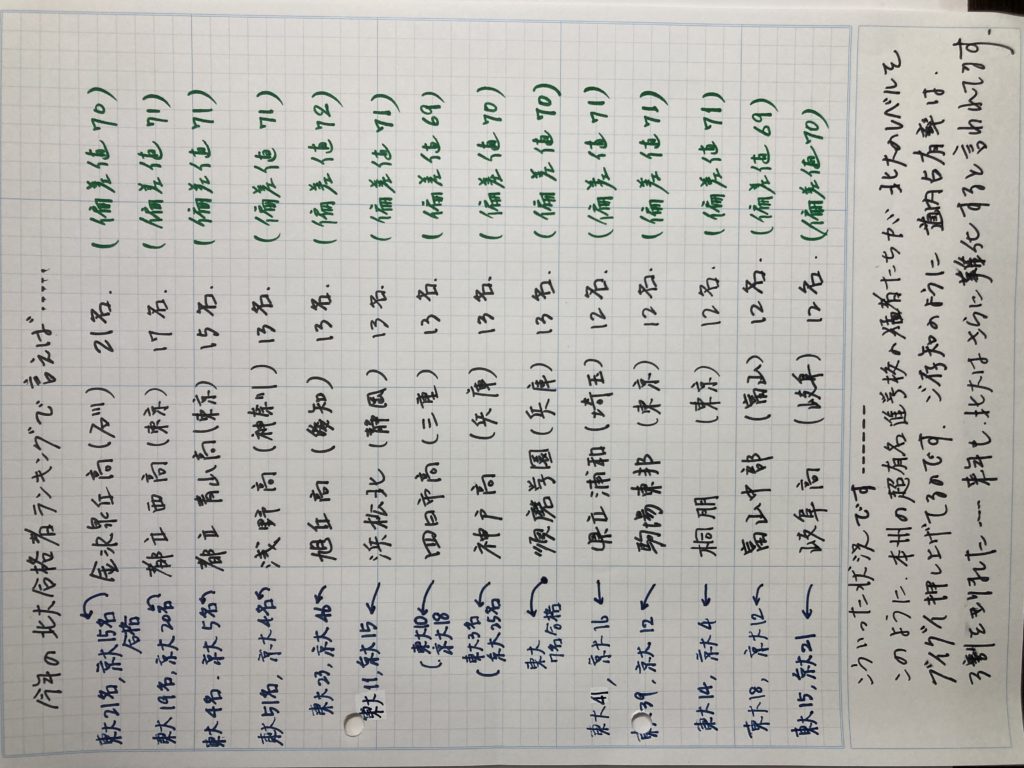 今年の北大合格者ランキングで言えば……
東大21名、京大15名合格 金沢泉丘高(石川) 21名.(偏差値70)
東大19名、京大20名 都立西高(東京) 17名.(偏差値71)
東大4名.京大5名 都立青山高(東京) 15名.(偏差値71)
東大51名、京大4名 浅野高(神奈川) 13名.(偏差値71)
東大23、京大46 旭丘高(愛知) 13名.(偏差値72)
東大11、京大15 浜松北(静岡) 13名.(偏差値71)
(東大10 京大18 四日市高(三重) 13名.(偏差値69)
(東大3名 京大25名 神戸高(兵庫) 13名.(偏差値70)
東大7名合格 須磨学園(兵庫) 13名.(偏差値70)
東大41、京大16 県立浦和(埼玉) 12名.(偏差値71)
39、京大12 駒場東邦(東京) 12名.(偏差値71)
東大14、京大4 桐朋(東京) 12名.(偏差値71)
東大18、京大12 高山中部(富山) 12名.(偏差値69)
東大15、京大21 岐阜高(岐阜) 12名.(偏差値70)
こういった状況です……
このように、本州の超有名進学校の猛者たちが北大のレベルを
グイグイ押し上げてるのです.ご存知のように道内占有率は、
3割を割れた……来年も、北大はさらに難化すると言われてます.